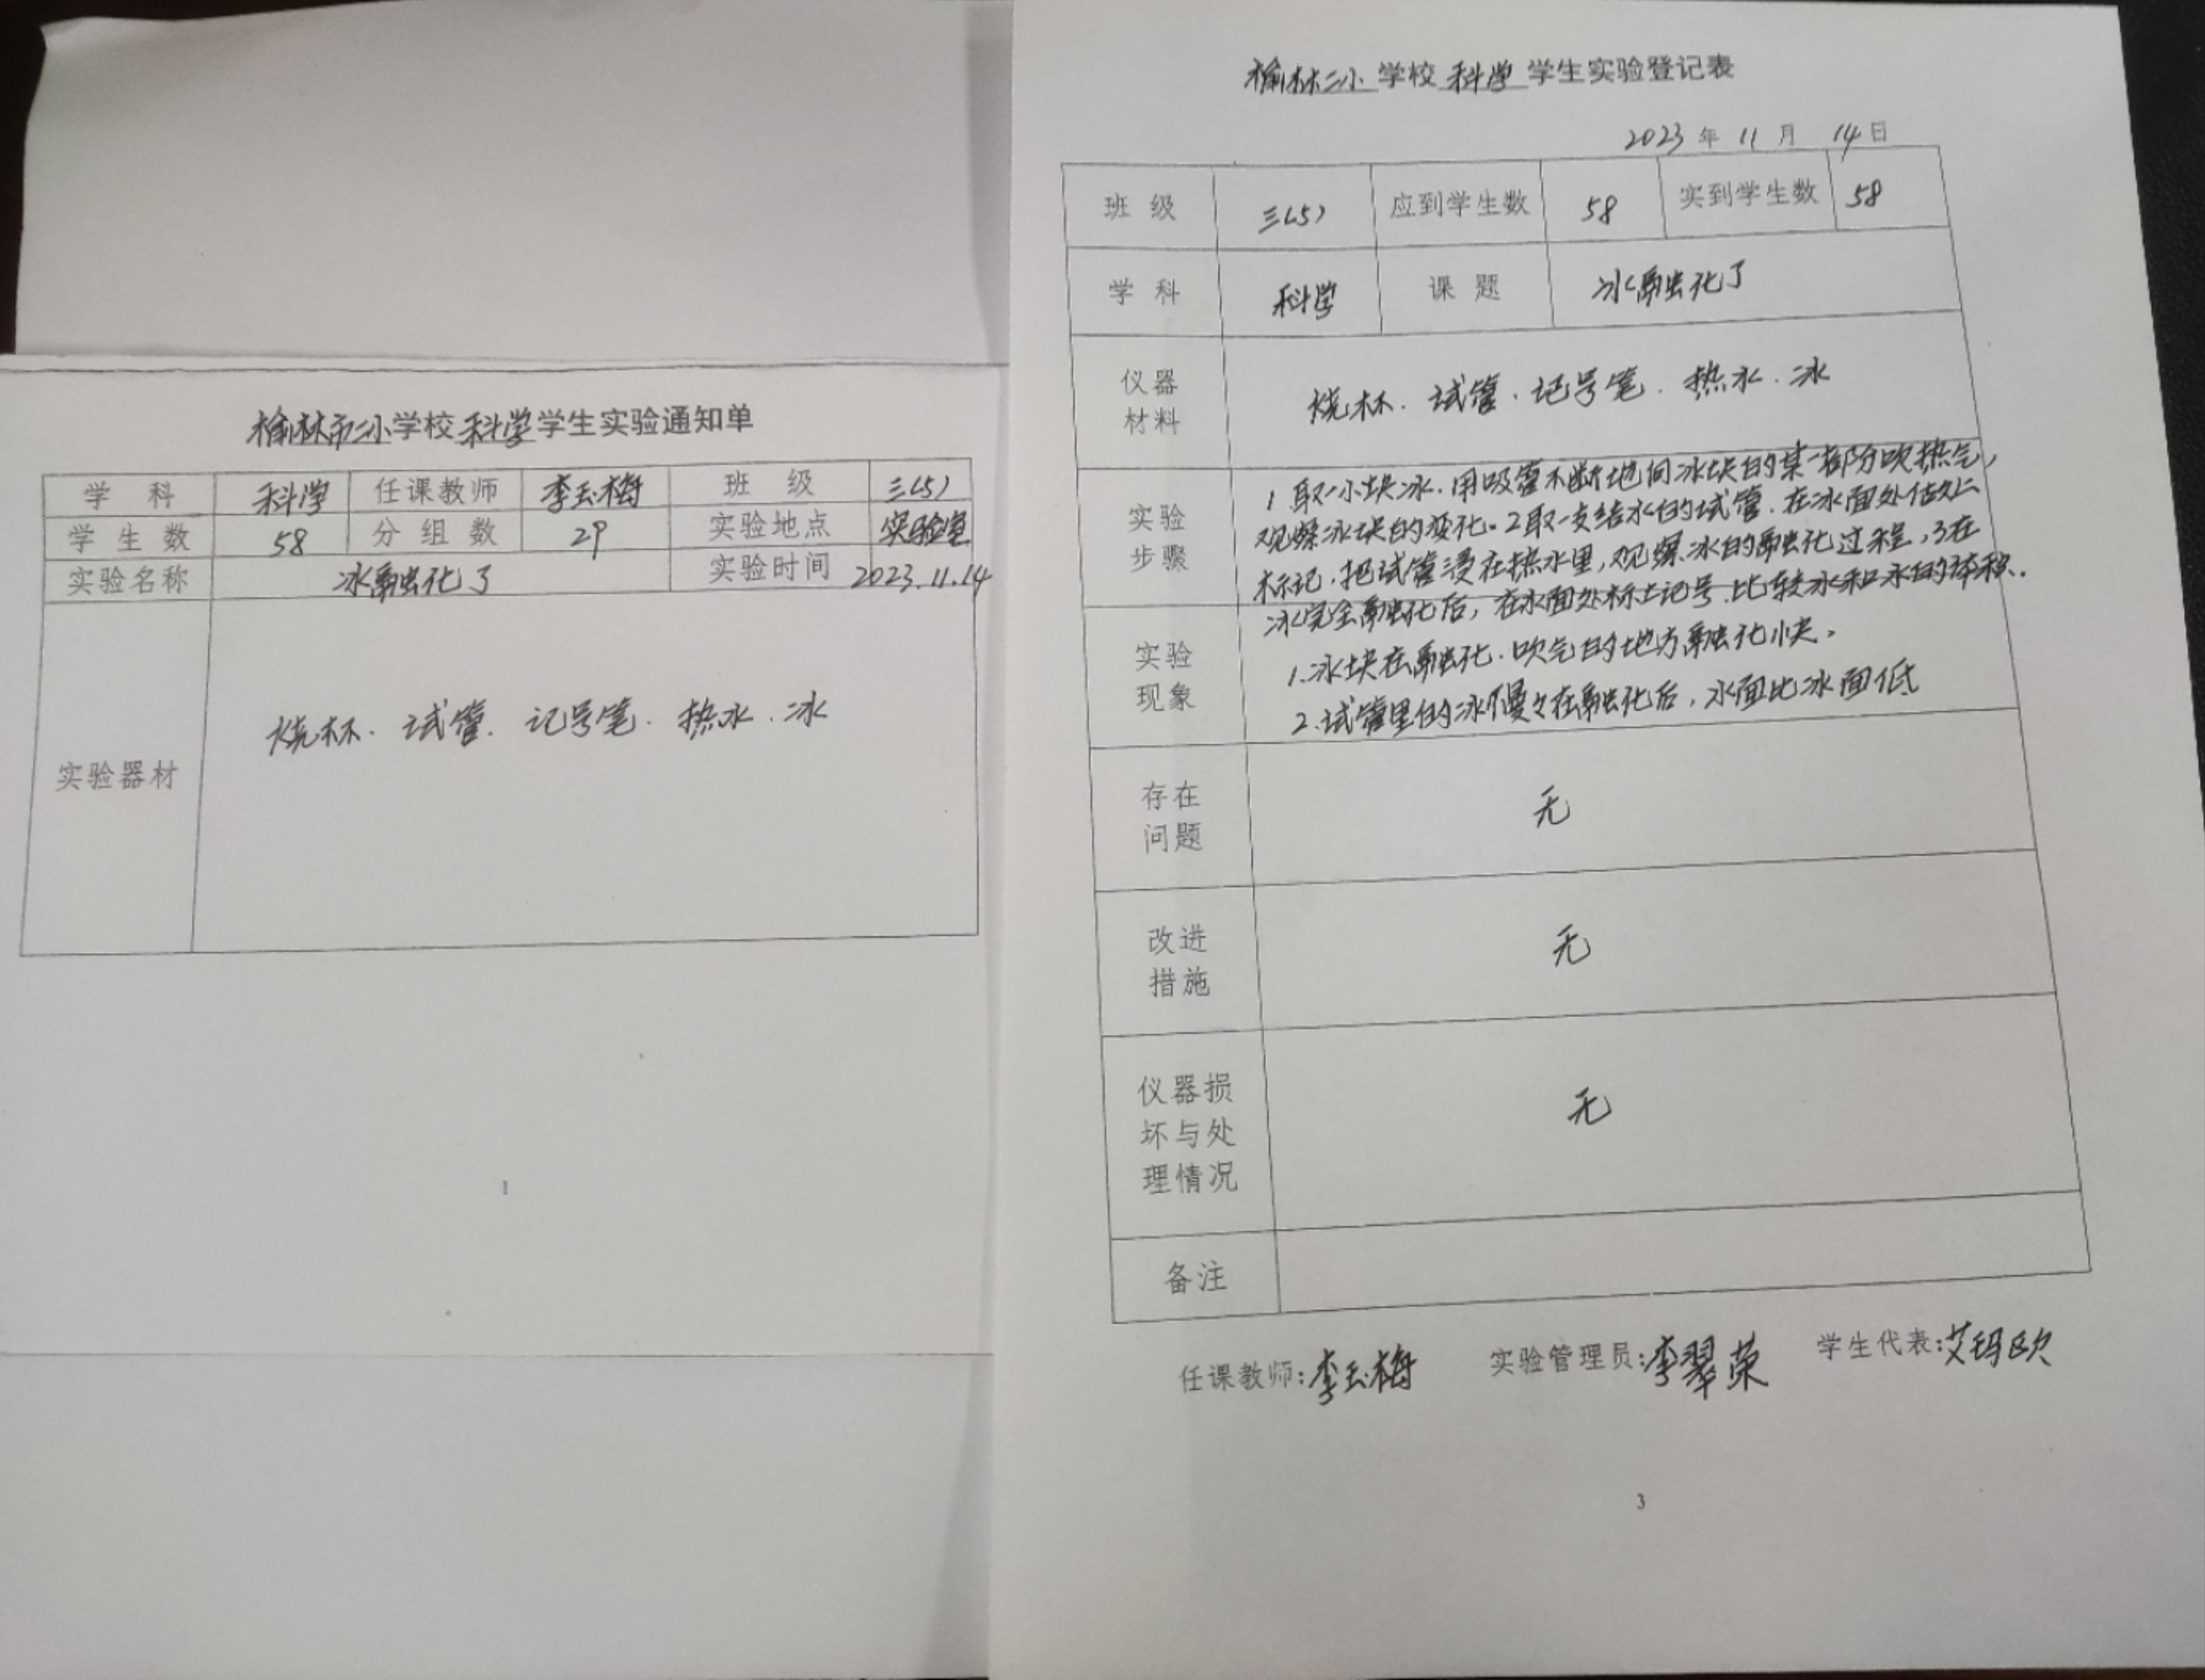 榆林市二小学校科学学生实验通知单
学 科 科学 任课教师 李玉梅 班 级 三(5)
学生数 58 分组数 29 实验地点 实验室
实验名称 冰融化了 实验时间 2023.11.14
实验器材 烧杯. 试管. 记号笔. 热水. 冰
1
榆林二小学校科学学生实验登记表
2023年11月14日
班 级 三(5) 应到学生数 58 实到学生数 58
学 科 科学 课 题 冰融化了
仪器
材料
烧杯. 试管. 记号笔. 热水. 冰
实验
步骤
1.取一小块冰.用吸管不断地向冰块的某一部分吹热气,
观察冰块的变化。2取一支结冰的试管.在冰面处
标记,把试管浸在热水里,观察冰的融化过程,3在
冰完全融化后,在水面处标上记号.比较水和冰的体积.
实验
现象
1.冰块在融化.吹气的地方融化快。
2.试管里的冰慢々在融化后,水面比冰面低
存在
问题
无
改进
措施
无
仪器损
坏与处
理情况
无
备注
任课教师:李玉梅 实验管理员:李翠荣 学生代表:艾玛欧
3